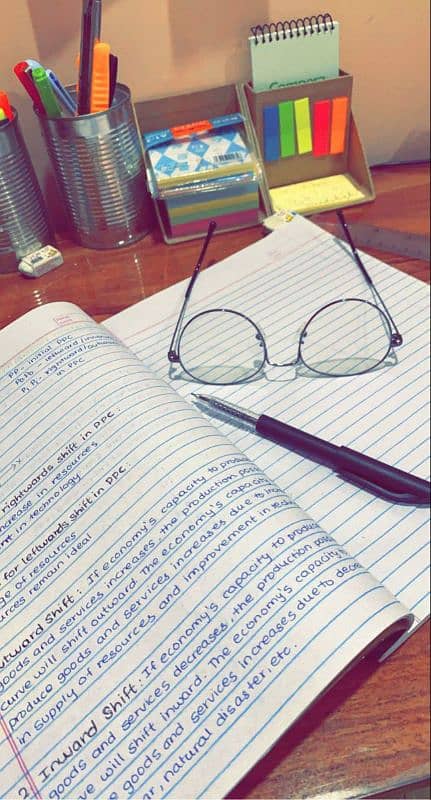 Campera
PP - initial PPC
leftward/inward
P₁P₁ - rightward/outward
in PPC
rightwards shift in PPC :
increase in resources
in technology
for leftwards shift in PPC :
of resources
remain ideal
Outward Shift : If economy's capacity to produce
goods and services increases, the production
curve will shift outward. The economy's capacity
produce goods and services increases due to
in supply of resources and improvement in
2. Inward Shift : If economy's capacity to produce
goods and services decreases, the production
will shift inward. The economy's capacity
goods and services increases due to
natural disaster, etc.